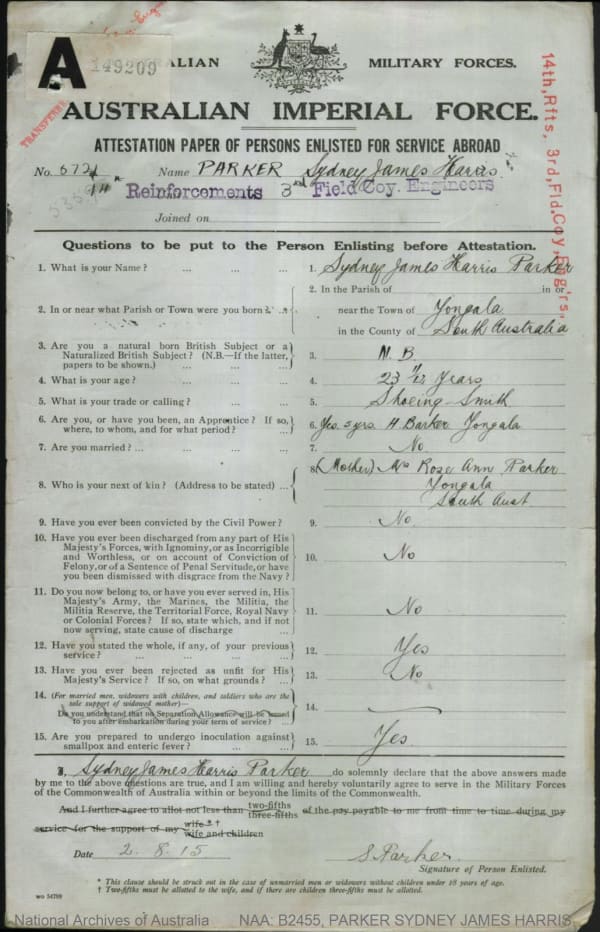 A
149209
AUSTRALIAN MILITARY FORCES.
AUSTRALIAN IMPERIAL FORCE.
TRANSFERRED
14th, Rfts, 3rd, Fld, Coy, Eng'rs.
ATTESTATION PAPER OF PERSONS ENLISTED FOR SERVICE ABROAD
No. Name PARKER Sydney James Harris
Reinforcements 3rd Field Coy. Engineers
Joined on
Questions to be put to the Person Enlisting before Attestation.
1. What is your Name? ... ... ... 1. Sydney James Harris Parker
2. In or near what Parish or Town were you born? ... 2. In the Parish of in or
near the Town of Yongala
in the County of South Australia
3. Are you a natural born British Subject or a
Naturalized British Subject? (N.B.—If the latter,
papers to be shown.) ... ... 3. N.B.
4. What is your age? ... ... ... 4. 23 11/12 Years
5. What is your trade or calling? ... ... 5. Shoeing-Smith
6. Are you, or have you been, an Apprentice? If so,
where, to whom, and for what period? ... 6. Yes. 5 yrs. H. Barker Yongala
7. Are you married? ... ... ... ... 7. No
8. Who is your next of kin? (Address to be stated) ... 8. (Mother) Mrs Rose Ann Parker
Yongala
South Aust
9. Have you ever been convicted by the Civil Power? 9. No
10. Have you ever been discharged from any part of His
Majesty's Forces, with Ignominy, or as Incorrigible
and Worthless, or on account of Conviction of
Felony, or of a Sentence of Penal Servitude, or have
you been dismissed with disgrace from the Navy? 10. No
11. Do you now belong to, or have you ever served in, His
Majesty's Army, the Marines, the Militia, the
Militia Reserve, the Territorial Force, Royal Navy
or Colonial Forces? If so, state which, and if not
now serving, state cause of discharge ... 11. No
12. Have you stated the whole, if any, of your previous
service? ... ... ... ... 12. Yes
13. Have you ever been rejected as unfit for His
Majesty's Service? If so, on what grounds? ... 13. No
14. (For married men, widowers with children, and soldiers who are the
sole support of widowed mother)—
Do you understand that no Separation Allowance will be issued
to you after embarkation during your term of service? ... 14.
15. Are you prepared to undergo inoculation against
smallpox and enteric fever? ... ... 15. Yes
I, Sydney James Harris Parker do solemnly declare that the above answers made
by me to the above questions are true, and I am willing and hereby voluntarily agree to serve in the Military Forces
of the Commonwealth of Australia within or beyond the limits of the Commonwealth.
And I further agree to allot not less than two-fifths three-fifths of the pay payable to me from time to time during my
service for the support of my wife * † wife and children
Date 2.8.15 S. Parker
Signature of Person Enlisted.
* This clause should be struck out in the case of unmarried men or widowers without children under 18 years of age.
† Two-fifths must be allotted to the wife, and if there are children three-fifths must be allotted.
National Archives of Australia NAA: B2455, PARKER SYDNEY JAMES HARRIS